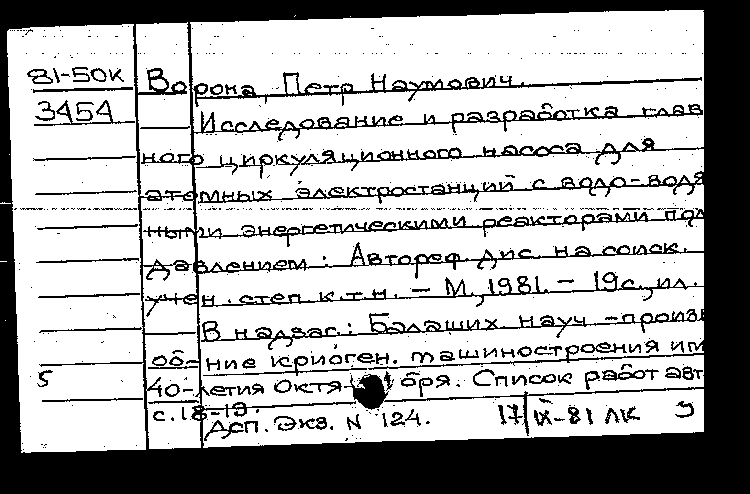 81-50к Ворона, Петр Наумович.
3454 Исследование и разработка глав
ного циркуляционного насоса для
атомных электростанций с водо-водя
ными энергетическими реакторами под
давлением: Автореф. дис. на соиск.
учен. степ. к.т.н. - М., 1981. - 19с., ил.
В надзаг.: Балаших. науч-произв
об-ние криоген. машиностроения им
5 40-летия Октября. Список работ авт
с. 18-19.
Дсп. Экз. N 124. 17/IX-81 ЛК